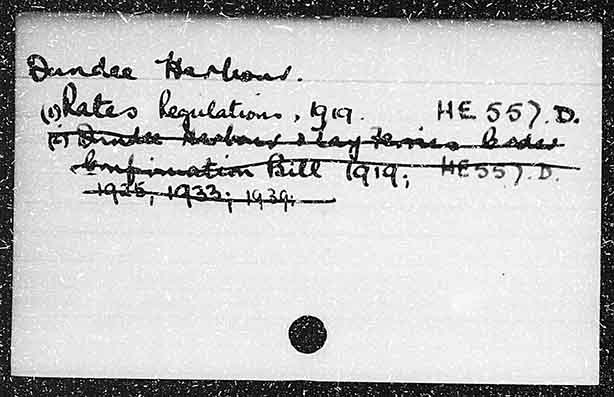 Dundee Harbour.
(1) Rates Regulations, 1919. HE 557.D.
(2) Dundee Harbour & Tay Ferries Order
Confirmation Bill 1919; HE 557.D.
1925, 1933; 1939;